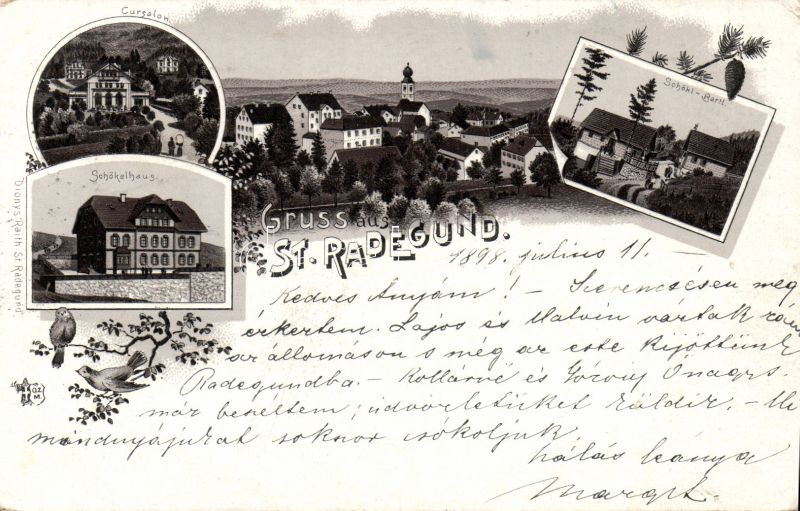 Cursalon.
Schökelhaus.
Schökl-Bartl.
Dionys Raith St. Radegund
Gruss aus
St. Radegund.
1898. július 11. –
Kedves Anyám! – Szerencsésen meg
érkertem. Lajos és Malvin vártak rám
az állomáson s még az este kijöttünk
Radegundba. – Kollárné és
már beszéltem, üdvözletüket küldik. – Mi
mindnyájukat sokszor csókoljuk.
hálás leánya
Margit.